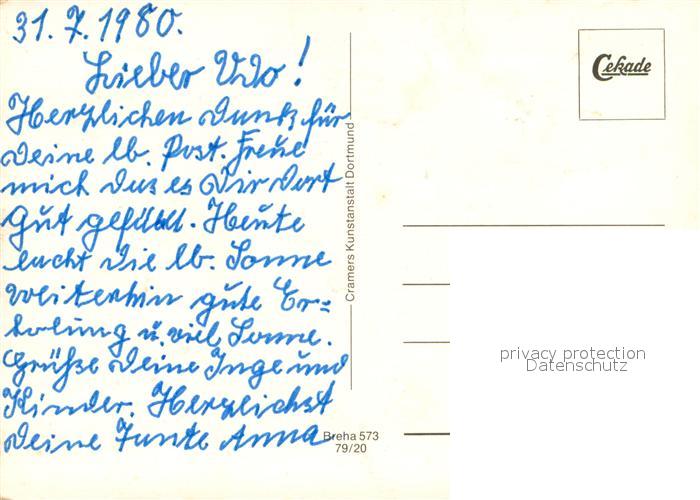 31.7.1980.
Lieber Udo!
Herzlichen Dank für
Deine lb. Post. Freue
mich das es Dir dort
gut gefällt. Heute
lacht die lb. Sonne
weiterhin gute Er=
holung u. viel Sonne.
Grüße Deine Inge und
Kinder. Herzlichst
Deine Tante Anna
Cekade
Cramers Kunstanstalt Dortmund
Breha 573
79/20
privacy protection
Datenschutz